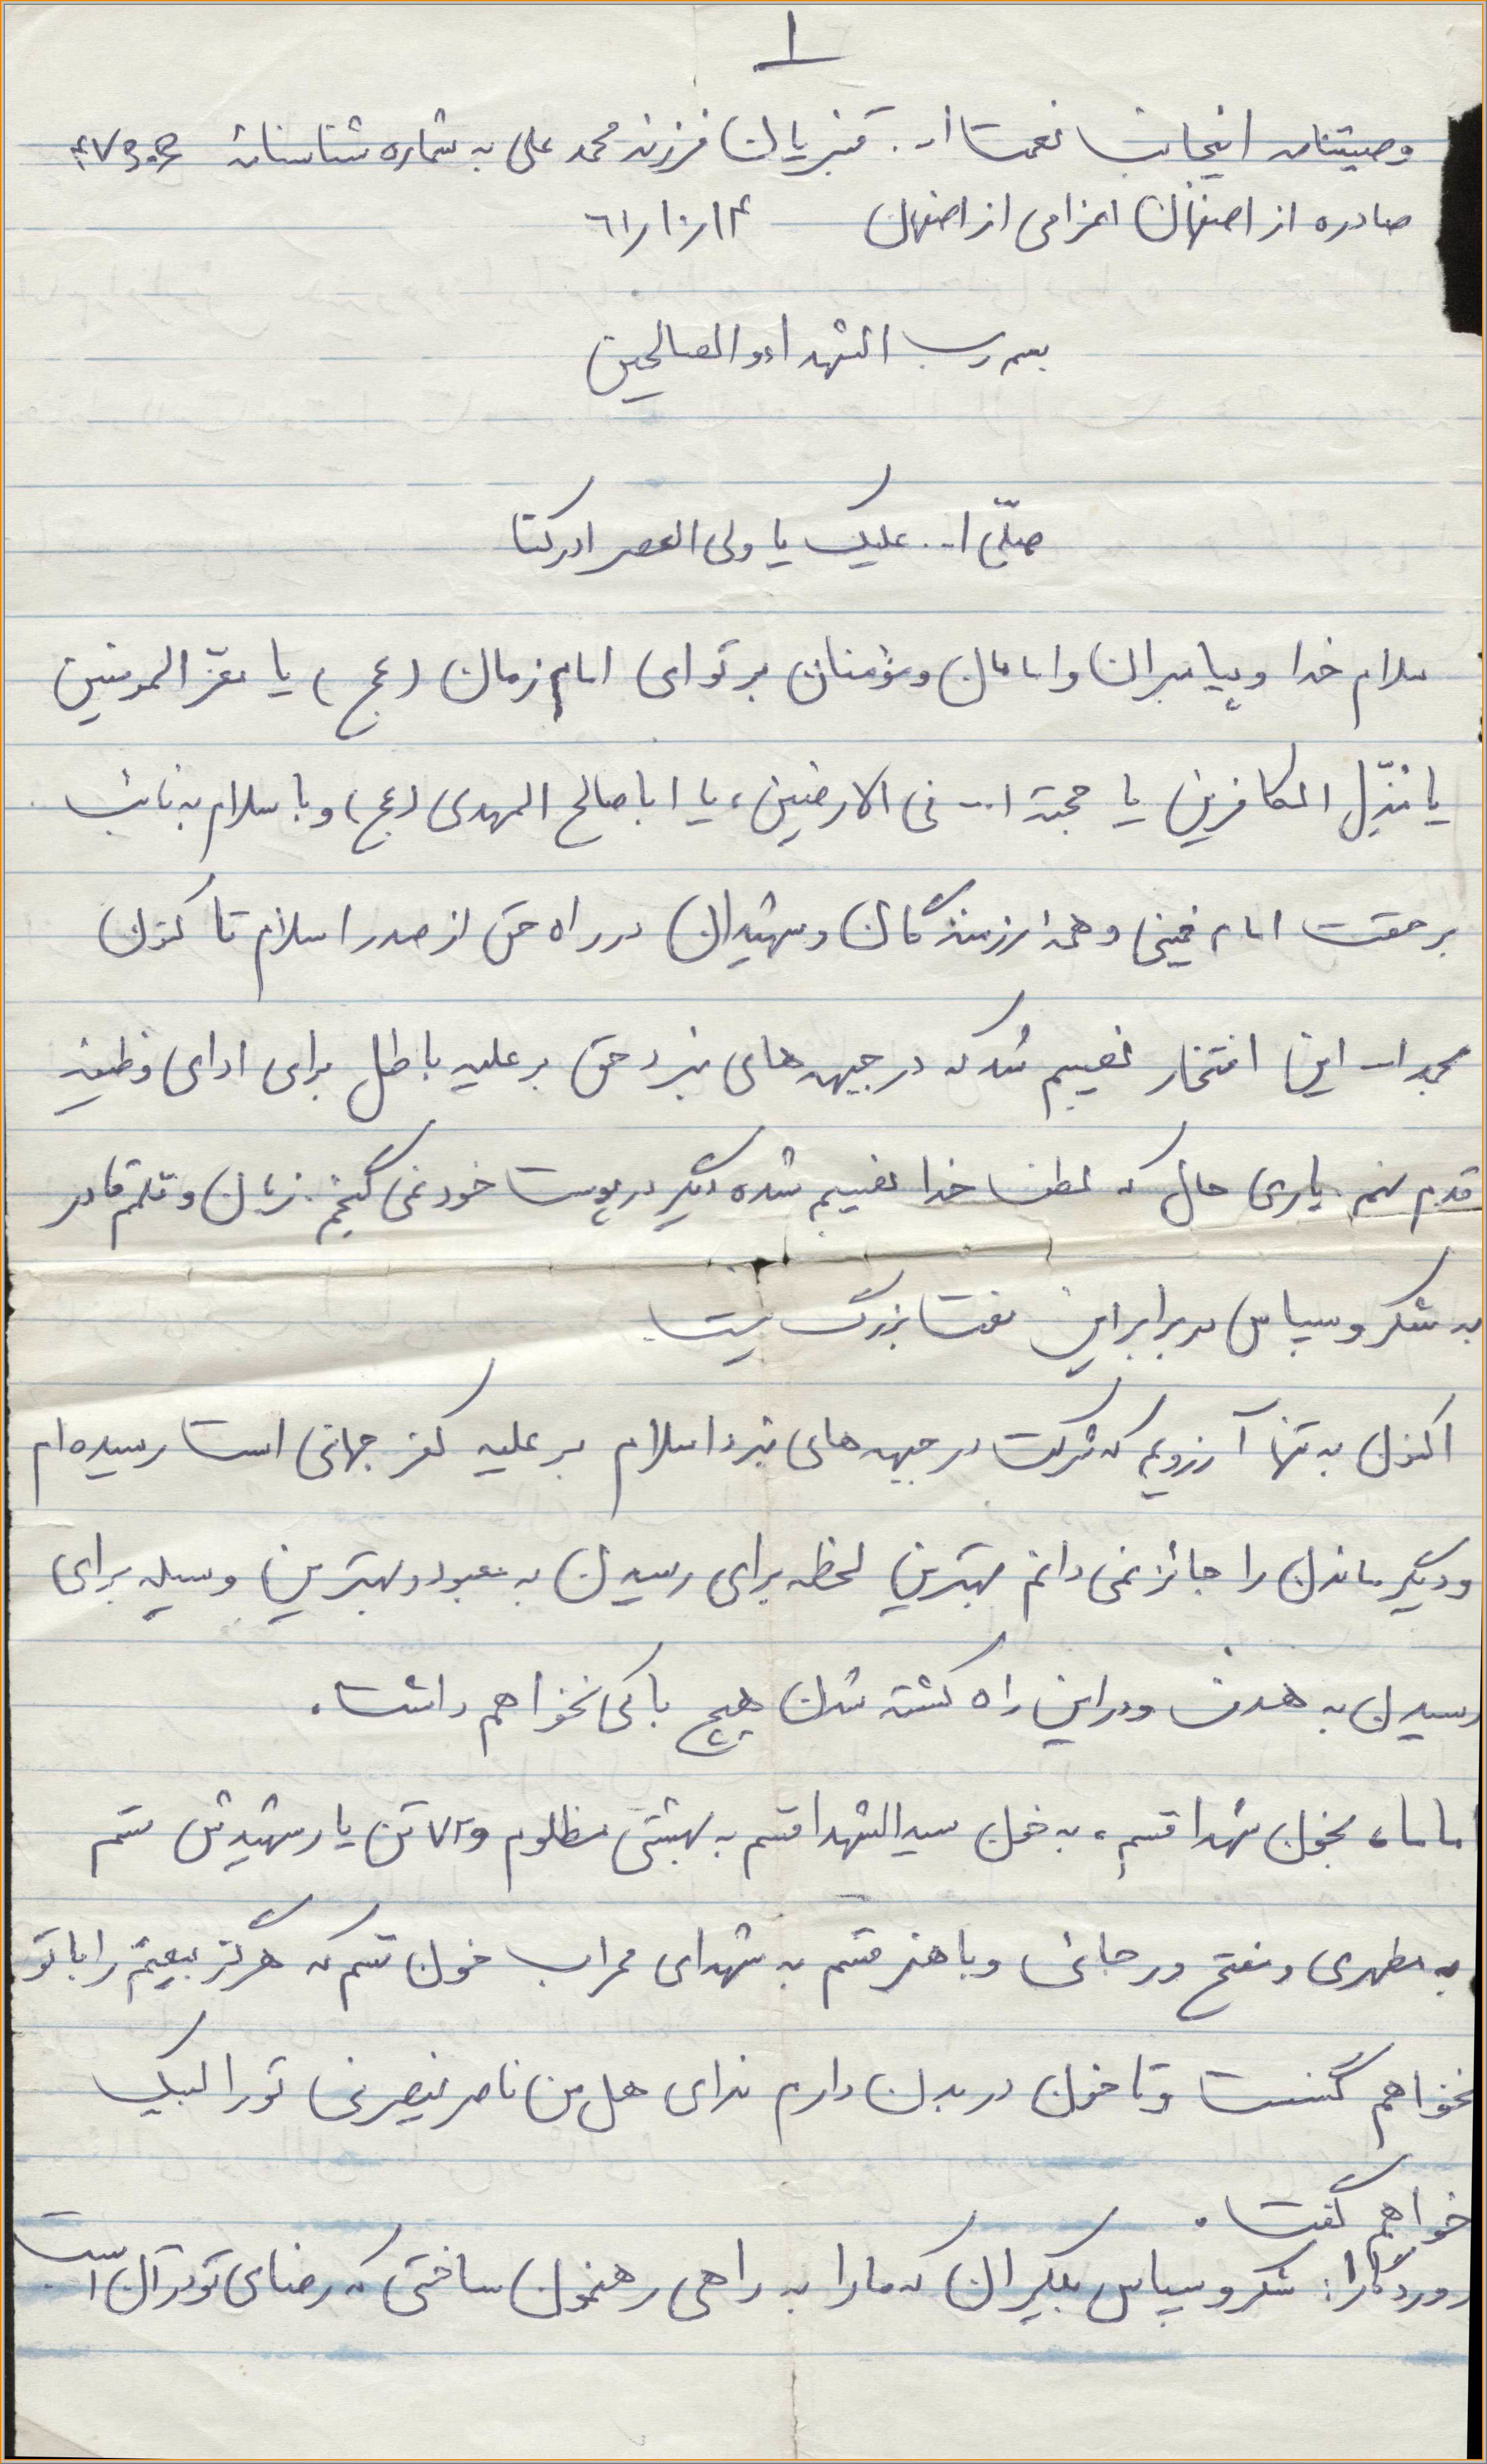 ۱
وصیتنامه اینجانب نعمت ا... قنبریان فرزند محمد علی به شماره شناسنامه
صادره از اصفهان اعزامی از اصفهان ۶۱/۱۰/۱۴
بسم رب الشهداء و الصالحین
صلّی ا... علیک یا ولی العصر ادرکنا
سلام خدا و پیامبران و امامان و مؤمنان بر تو ای امام زمان (عج) یا معز المومنین
یا مذّل الکافرین یا حجة ا... فی الارضین، یا ابا صالح المهدی (عج) و با سلام به نائب
بر حقت امام خمینی و همه رزمندگان و شهیدان در راه حق از صدر اسلام تا کنون
بحمد ا... این افتخار نصیبم شد که در جبهه های نبرد حق بر علیه باطل برای ادای وظیفه
قدم نهم. یاری حال که لطف خدا نصیبم شده دیگر در پوست خود نمی گنجم. زبان و قلمم قادر
به شکر و سپاس در برابر این نعمت بزرگ نیست
اکنون به تنها آرزویم که شرکت در جبهه های نبرد اسلام بر علیه کفر جهانی است رسیده ام
و دیگر ماندن را جائز نمی دانم بهترین لحظه برای رسیدن به معبود و بهترین وسیله برای
رسیدن به هدف و در این راه کشته شدن هیچ باکی نخواهم داشت.
اماما، بخون شهدا قسم، به خون سید الشهدا قسم به بهشتی مظلوم و ۷۲ تن یار شهیدش قسم
به مطهری و مفتح و رجائی و باهنر قسم به شهدای محراب خون قسم که هرگز بیعتم را با تو
نخواهم گسست و تا خون در بدن دارم ندای هل من ناصر ینصرنی تو را لبیک
خواهم گفت.
روردگارا: شکر و سپاس بیکران که ما را به راهی رهنمون ساختی که رضای تو در آن است